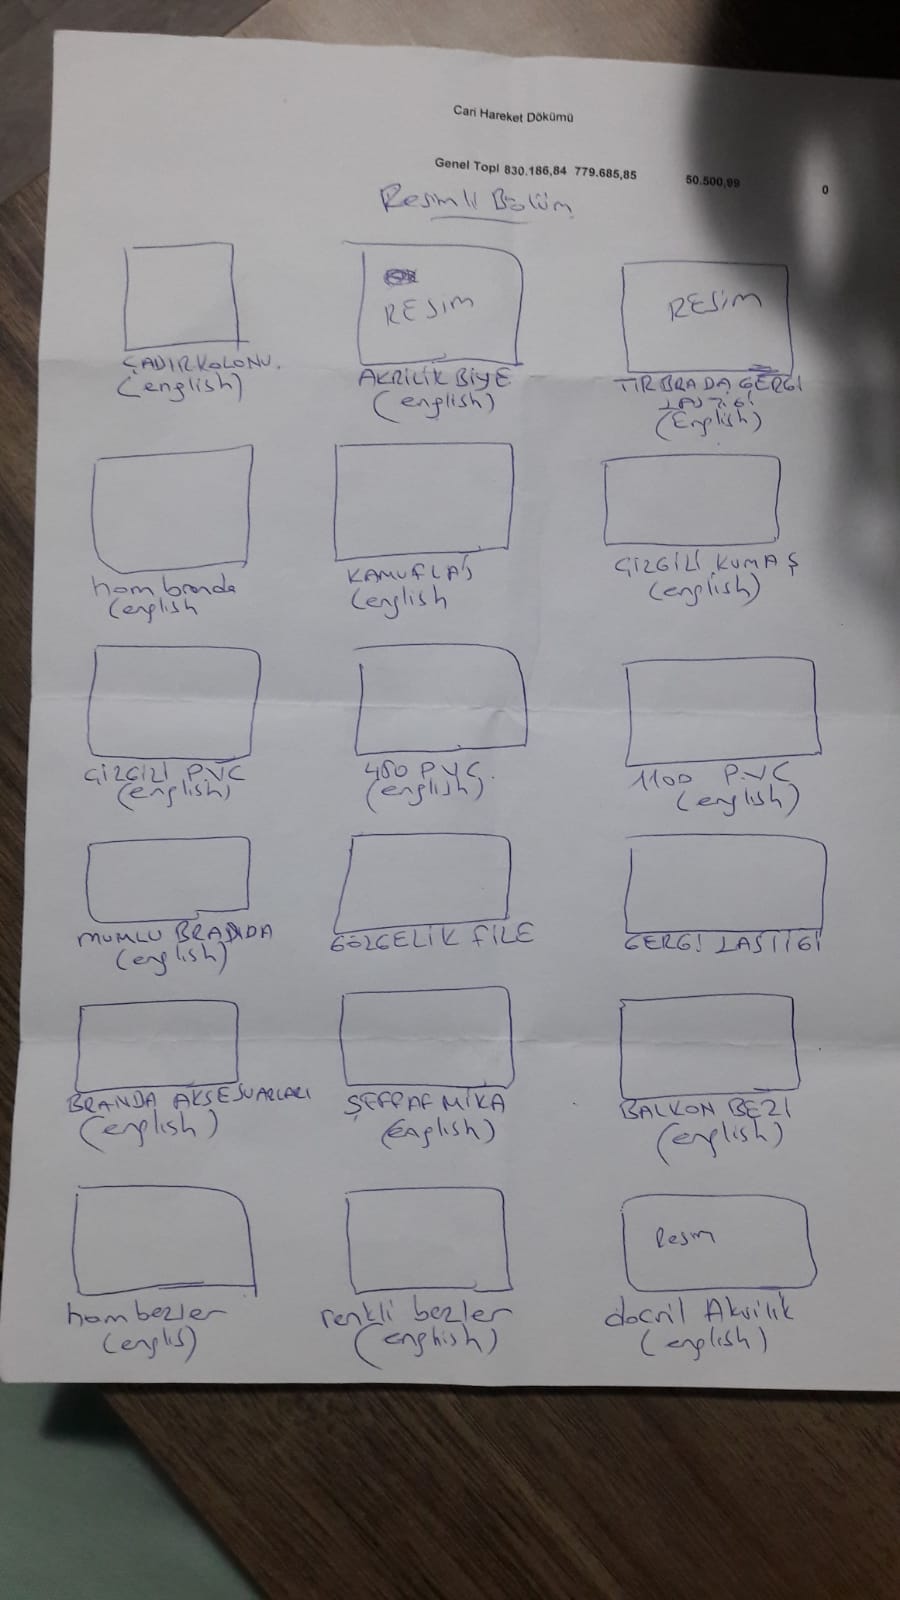 Cari Hareket Dökümü
Genel Topl 830.186,84 779.685,85 50.500,99 0
Resimli Bölüm
RESIM
RESİM
ÇADIR KOLONU.
(english)
AKRİLİK BİYE
(english)
TIR BRADA GERGİ
LASTİĞİ
(English)
ham branda
(english
KAMUFLAJ
(english
ÇİZGİLİ KUMAŞ
(english)
ÇİZGİLİ PVC
(english)
450 PVC.
(english)
1100 PVC
(english)
MUMLU BRANDA
(english)
GÖLGELİK FİLE
GERGİ LASTİĞİ
BRANDA AKSESUARLARI
(english)
ŞEFFAF MİKA
(English)
BALKON BEZİ
(english)
Resm
ham bezler
(englis)
renkli bezler
(enghish)
docril Akrilik
(english)